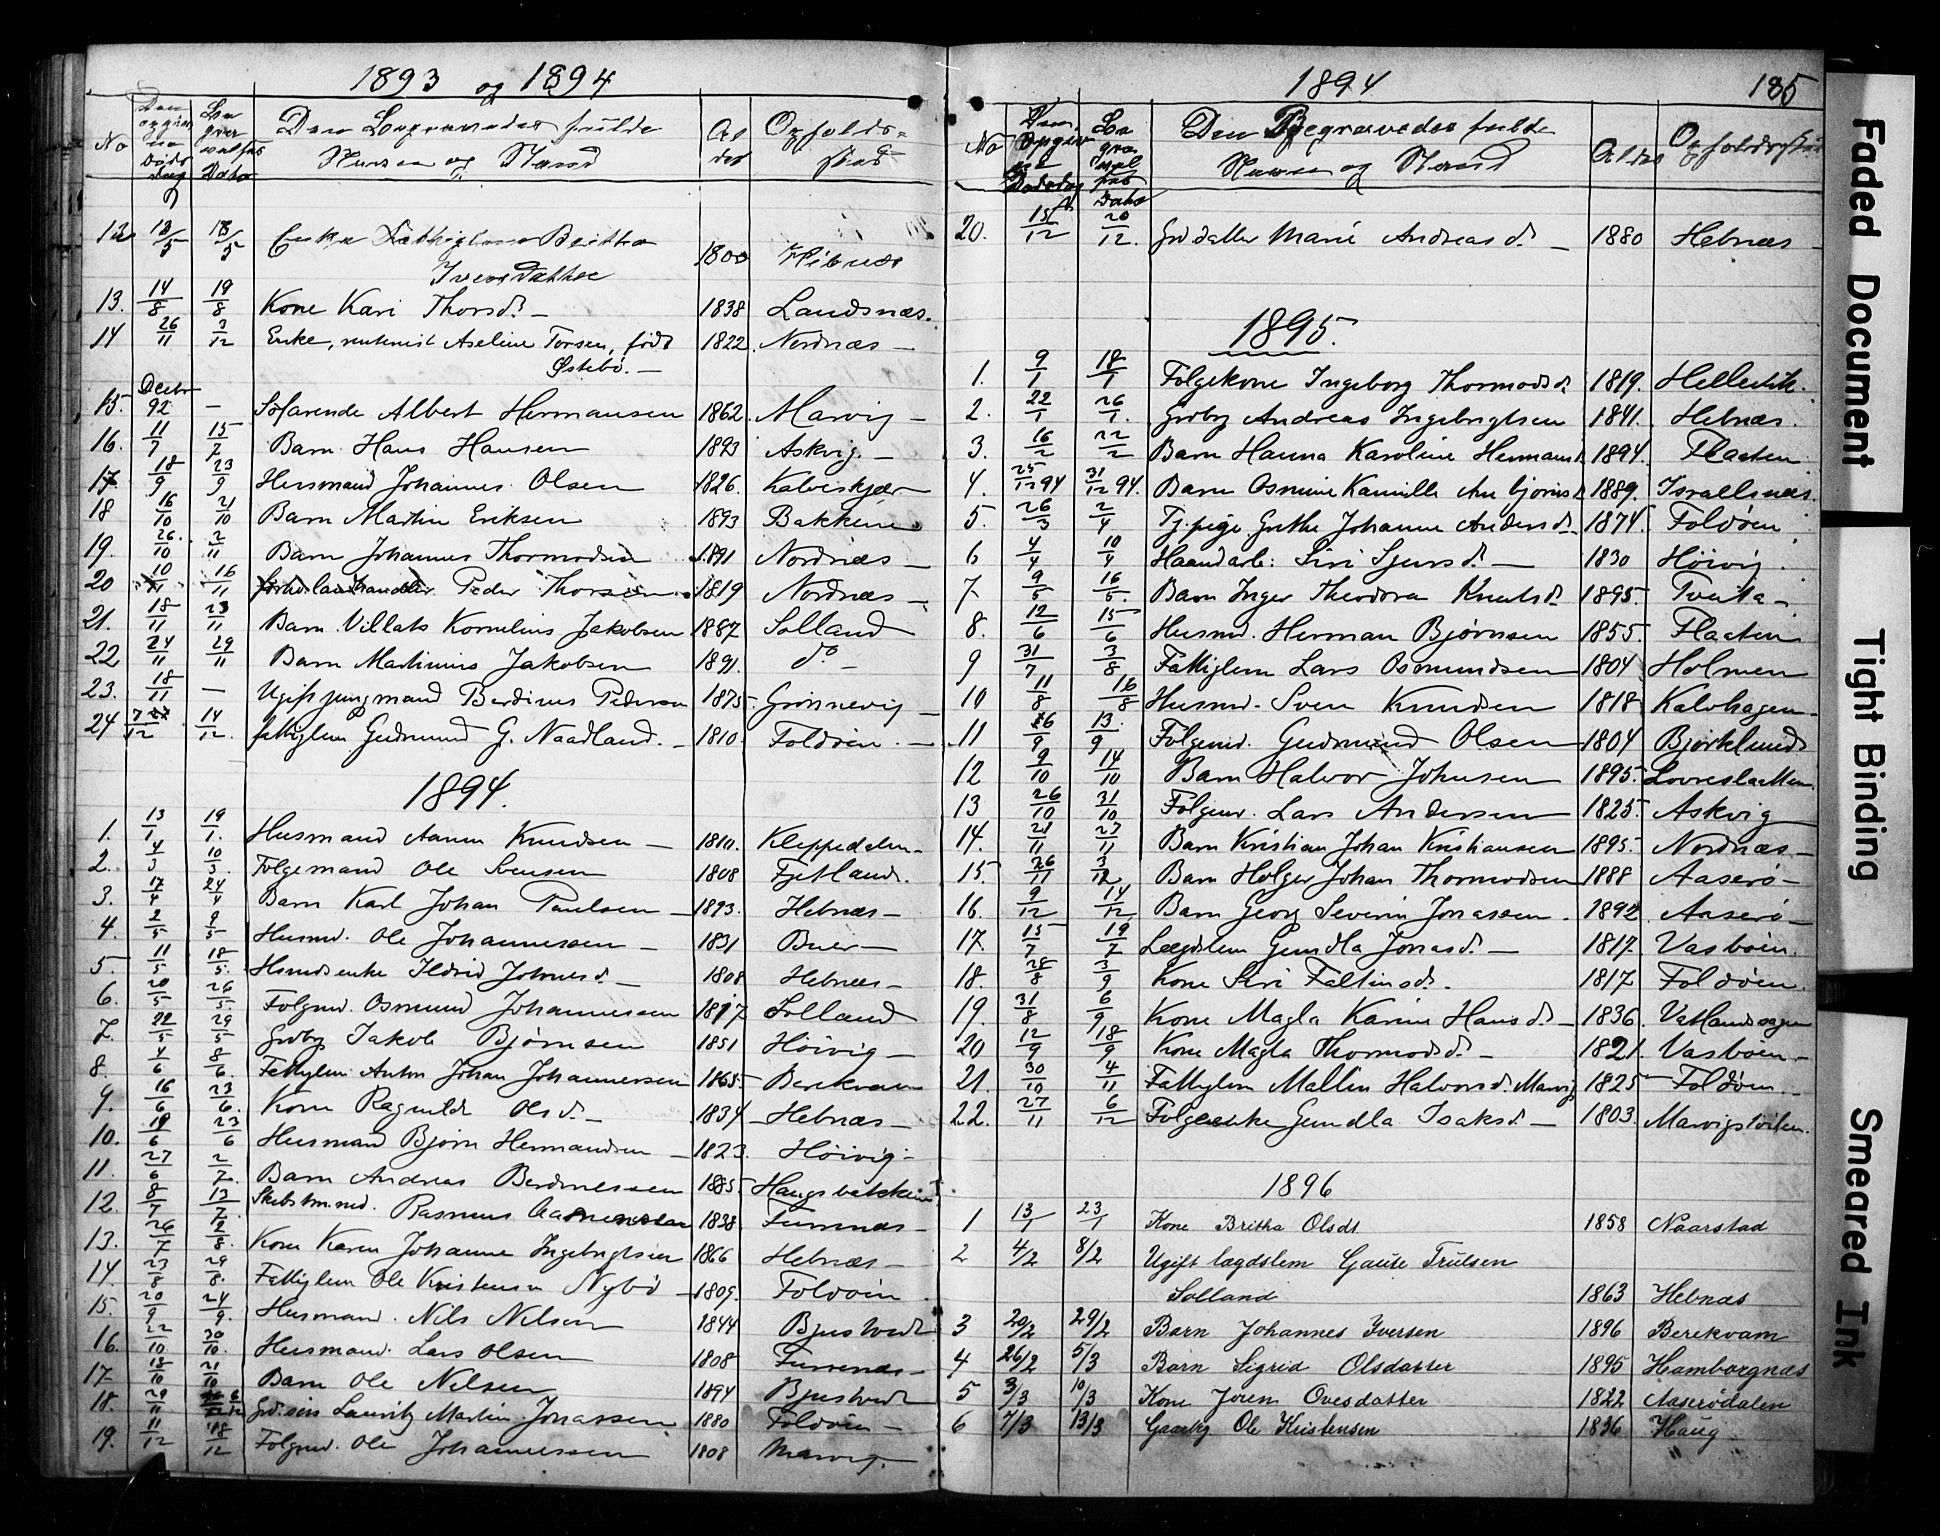 1893 og 1894
No
Den opgivne Döds Dag
Be gra velses Dato
Den Begravedes fulde Navn og Stand
Al der
Opholds- sted
12 13/5 18/5 Enke Fattiglem Berthe
Iversdatter 1800 Hebnæs
13. 14/8 19/8 Kone Kari Thorsd. – 1838 Landsnæs.
14 26/11 3/12 Enke, Aseline Torsen, født 1822. Nordnæs –
Østebö. –
15. Decbr 92 – Söfarende Albert Hermansen 1862. Marvig –
16. 11/7 15/7 Barn Hans Hansen 1893 Askvig. –
17. 18/9 23/9 Husmand Johannes Olsen 1826. Kalveskjær
18 16/10 21/10 Barn Martin Eriksen 1893 Bakken
19. 26/10 2/11 Barn Johannes Thormodsen 1891 Nordnæs –
20 10/11 16/11 Peder Thorsen 1819 Nordnæs –
21. 18/11 23/11 Barn Villats Kornelius Jakobsen 1887. Solland
22 24/11 29/11 Barn Martinius Jakobsen 1891. do –
23. 18/11 – Ugift yngmand Berdinus Pedersen 1875 Grönnevig
24 7/12 14/12. fattiglem Gudmund G. Naadland. – 1810. Foldöen. –
1894.
1. 13/1 19/1. Husmand Aanen Knudsen – 1810. Kleppedalen –
2. 4/3 10/3. Folgemand Ole Svensen 1808 Fjetland.
3. 17/4 24/4 Barn Karl Johan Paulsen – 1893. Hebnæs –
4. 2/5 9/5 Husmd. Ole Johannessen – 1831 Buer –
5. 11/5 18/5. Hsmdsenke Ildrid Johnesd. – 1808 Hebnæs –
6. 20/5 26/5. Folgmd. Osmund Johannessen 1817 Solland
7. 22/5 29/5 Grdbg Jakob Bjørnsen 1851 Höivig –
8. 4/6 8/6. Fattiglem Anton Johan Johannessen 1865 – Berekvam
9. 16/6 23/6. Kone Ragnilde Olsd. – 1834 – Hebnæs –
10. 19/6 23/6 Husmand Bjørn Hermandsen – 1823. Höivig –
11. 27/6 2/7. Barn Andreas Berdinessen 1885 – Haugsbakken
12. 8/7 13/7 Skibstmmd. Rasmus Aamundsen 1838 Furrenæs –
13. 26/7 12/8. Kone Karen Johanne Ingebrigtsen 1866 Hebnæs –
14. 23/8 29/8. Fattiglem Ole Kristensen Nybö – 1809. Foldöin
15. 20/9 24/9. Husmand. Nils Nilsen 1844 Bjustvedt
16. 22/10 30/10. Husmand. Lars Olsen 1808 Furrenæs –
17. 18/10 21/10 Barn Ole Nilsen 1894 Bjustvedt
18. 29/11 6/12 Grd:søn Lauritz Martin Jonassen 1880 Foldöin –
19. 11/12 18/12 Folgmd. Ole Johannessen 1808 Marvig.
1894
185
No
Den Opgivne Dødsdag
Be gra vel ses Dato
Den Begravedes fulde Navn og Stand
Alder
Opholdssted
20. 15/12 20/12. Grddatter Marie Andreasd. – 1880 Hebnæs
1895.
1. 9/1 18/1 Folgekone Ingeborg Thormodsd. 1819. Hellestlk.
2. 22/1 26/1. Grdbg Andreas Ingebrigtsen 1841. Hebnæs.
3. 16/2 22/2 Barn Hanna Karoline Hermansd. 1894. Flaaten
4. 25/12 94 31/12 94. Barn Osmine Kamilla Anbjørnsd. 1889. Israelsnæs.
5. 26/3 2/4 Tj.pige Grethe Johanne Andersd. 1874. Foldöen
6 4/4 10/4 Haandarb: Siri Sjursd. – 1830 Höivig.
7. 9/5 16/5. Barn Inger Theodora Knutsd. 1895. Tveita –
8. 12/6 15/6 Husmd. Herman Bjørnsen 1855. Flaaten
9 31/7 3/8 Fattiglem Lars Osmundsen 1804 Holmen
10 11/8 16/8 Husmd. Sven Knudsen 1818 Kalvhagen
11 6/9 13/9. Folgemd. Gudmund Olsen 1804 Bjørklund
12 9/10 14/10 Barn Halvor Johnsen 1895. Lovreslaatten
13 26/10 31/10 Folgmd. Lars Andersen 1825 Askvig
14. 21/11 27/11 Barn Kristian Johan Kristiansen 1895 Nordnæs –
15. 26/11 3/12 Barn Holger Johan Thormodsen 1888 Aaserö –
16. 9/12 14/12 Barn Georg Severin Jonassen. 1892 Aaserö –
17. 15/7 19/7 Lægdslem Gundla Jonasd. – 1817. Vasböen.
18. 28/8 3/9 Kone Siri Faltinsd. 1817 Foldöen.
19. 31/8 6/9 Kone Magla Karine Hansd. – 1836. Vatlandsvagen
20 12/9 18/9 Kone Magla Thormodsd. – 1821. Vasböen –
21. 30/10 4/11 Fattiglem Mallin Halvorsd. Marvig 1825 – Foldöen
22. 27/11 6/12 Folgeenke Gundla Isaksd. – 1803. Marvigstöilen.
1896
1 13/1 23/1 Kone Britha Olsdt 1858 Naarstad
2 4/2 8/2 Ugift lægdslem Gaute Trulsen
Solland 1863 Hebnæs
3 20/2 29/2 Barn Johannes Iversen 1896 Berekvam
4 26/2 5/3 Barn Sigrid Olsdatter 1895 Hamborgnæs
5 3/3 10/3 Kone Joren Ovesdatter 1822 Aaserödalen
6 7/3 13/3 Gaarbg Ole Kristensen 1836 Haug
Faded Document
Tight Binding
Smeared Ink